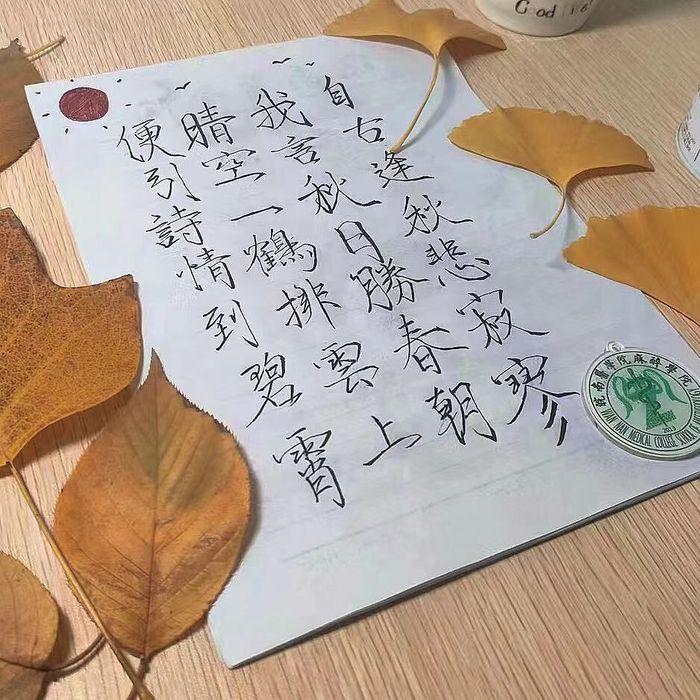 自古逢秋悲寂寥
我言秋日勝春朝
晴空一鶴排雲上
便引詩情到碧霄
皖南醫學院麻醉學院
WAN NAN MEDICAL COLLEGE
Good